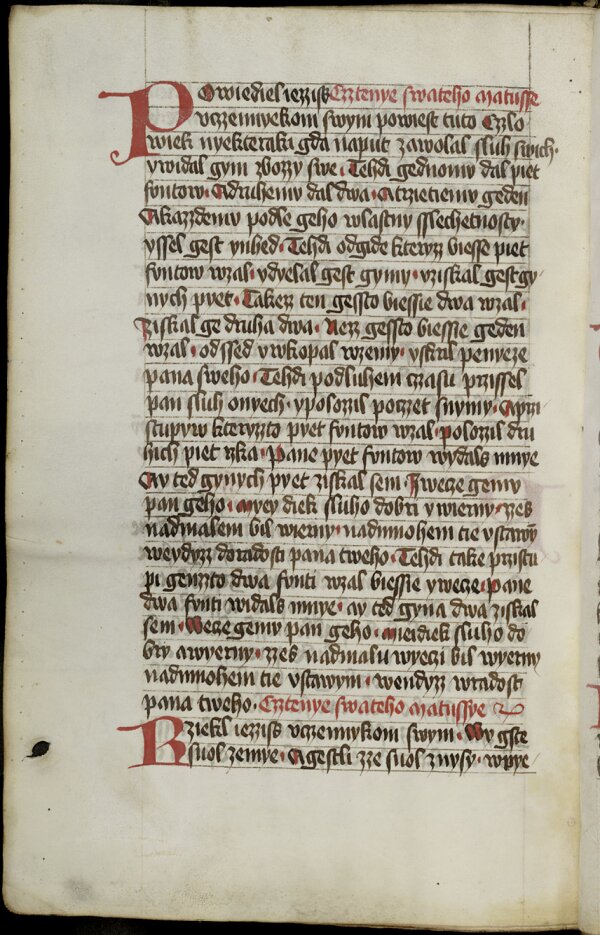 Powiediel iezzis Cztenye swateho Matusse
vczzemyekom swym powiest tuto Czlo
wiek nyekteraki gda naput zawolal sluh swich·
vwidal gym zbozzy swe· Tehdi gednomv dal piet
fontow· Adruhemv dal dwa· Atrzietiemv geden
Akazzdemv podle geho wlastny sslechetnosty·
yssel gest ynhed· Tehdi odgide kteryz biesse piet
fontow wzal· vdyelal gest gymy· yziskal gest gy
nych pyet· Takez ten gessto biessie dwa wzal·
Ziskal ge druha dwa· Nez gessto biessie geden
wzal· odssed vwkopal wzemy· yskril penyeze
pana sweho· Tehdi podluhem czasu przissel
pan sluh onych· ypolozil poczet snymy· Aprzi
stupyw kteryzto pyet fontow wzal· polozil dru
hich piet rzka· Pane pyet fontow wydals mnye
Ay ted gynych pyet ziskal sem Iwecze gemv
pan geho· Myey diek sluho dobri ywierny· zes
nadmalem bil wierny· nadmnohem tie vstawy
weydyz doradosti pana tweho· Tehdi take przistu
pi genzto dwa fonti wzal biessie ywecze· Pane
dwa fonti widals mnye· ay ted gyna dwa ziskal
sem· Wecze gemv pan geho· Meidiek sluho do
bry awyerny· zzes nadmalu wyeczi bil wyerny
nadmnohem tie vstawym· wendyz wradost
pana tweho· Cztenye swateho Matussye
Rziekl iezzis vczenykom swym· Wy gste
suol zemye· Agestli zze suol znysy· wpye